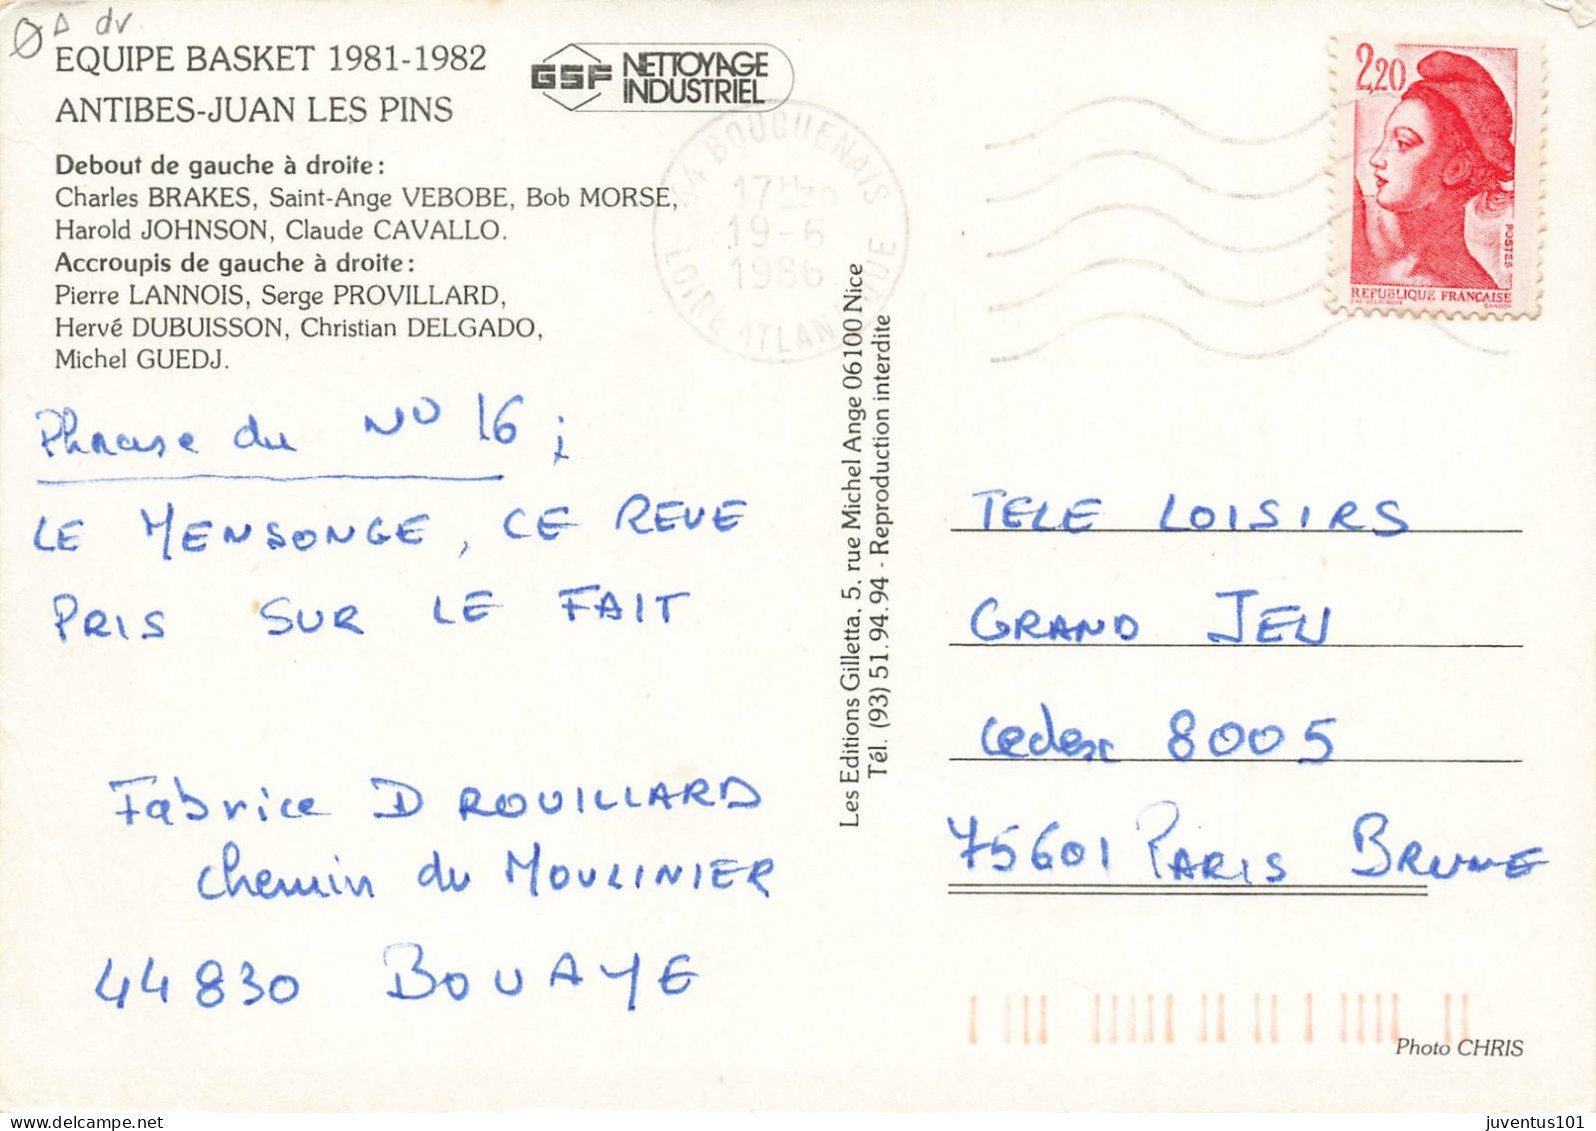 dv
EQUIPE BASKET 1981-1982
ANTIBES-JUAN LES PINS
GSF NETTOYAGE
INDUSTRIEL
Debout de gauche à droite :
Charles BRAKES, Saint-Ange VEBOBE, Bob MORSE,
Harold JOHNSON, Claude CAVALLO.
Accroupis de gauche à droite :
Pierre LANNOIS, Serge PROVILLARD,
Hervé DUBUISSON, Christian DELGADO,
Michel GUEDJ.
44 BOUGUENAIS
19-6
1986
LOIRE ATLANTIQUE
2,20
POSTES
REPUBLIQUE FRANÇAISE
Phrase du N° 16 ;
LE MENSONGE, CE REVE
PRIS SUR LE FAIT
Fabrice DROUILLARD
chemin du MOULINIER
44830 BOUAYE
Les Editions Gilletta. 5, rue Michel Ange 06100 Nice
Tél. (93) 51.94.94 - Reproduction interdite
TELE LOISIRS
GRAND JEU
Cedex 8005
75601 PARIS BRUNE
Photo CHRIS
juventus101